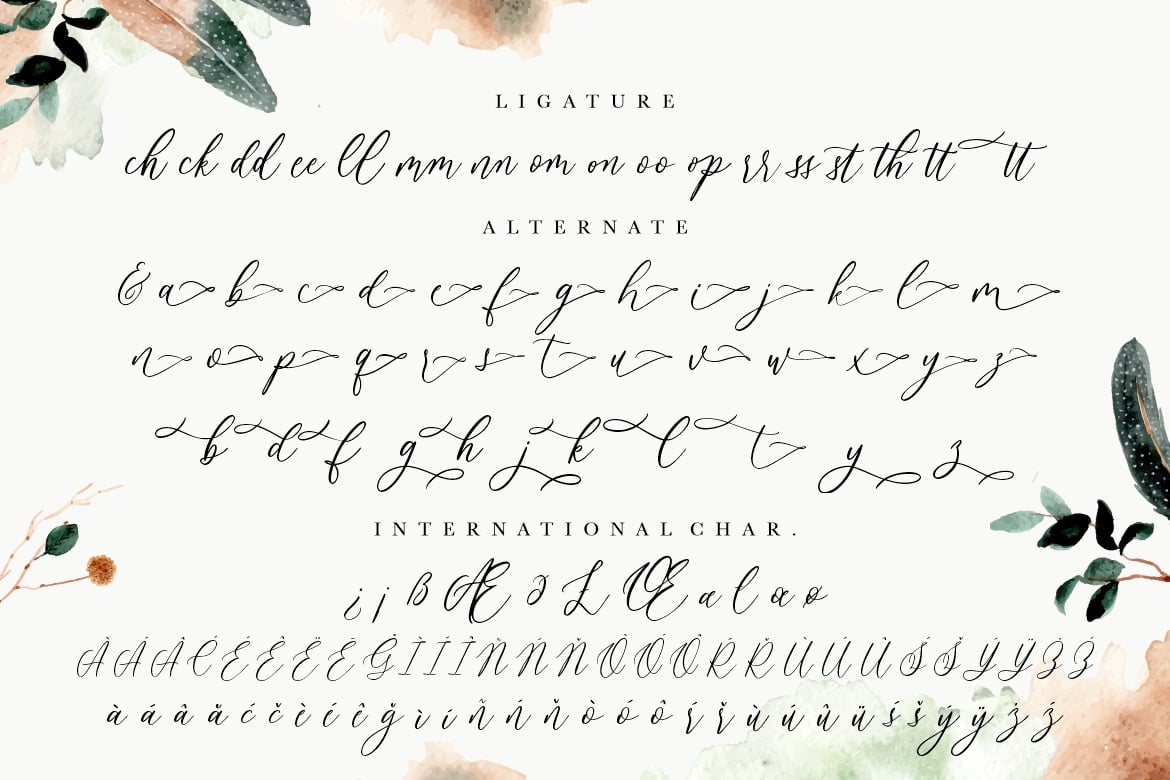 LIGATURE
ch ck dd ee ll mm nn om on oo op rr ss st th tt tt
ALTERNATE
& a b c d e f g h i j k l m
n o p q r s t u v w x y z
b d f g h j k l t y z
INTERNATIONAL CHAR.
¿ ¡ ß Æ Ł Œ ł ø
À Á Â É Ê Ë Ñ Ù Ú Û
à á â č è é ê ğ ì í ñ ń ň ò ó ô ŕ ř ù ú û ü ś š ý ÿ ż ź